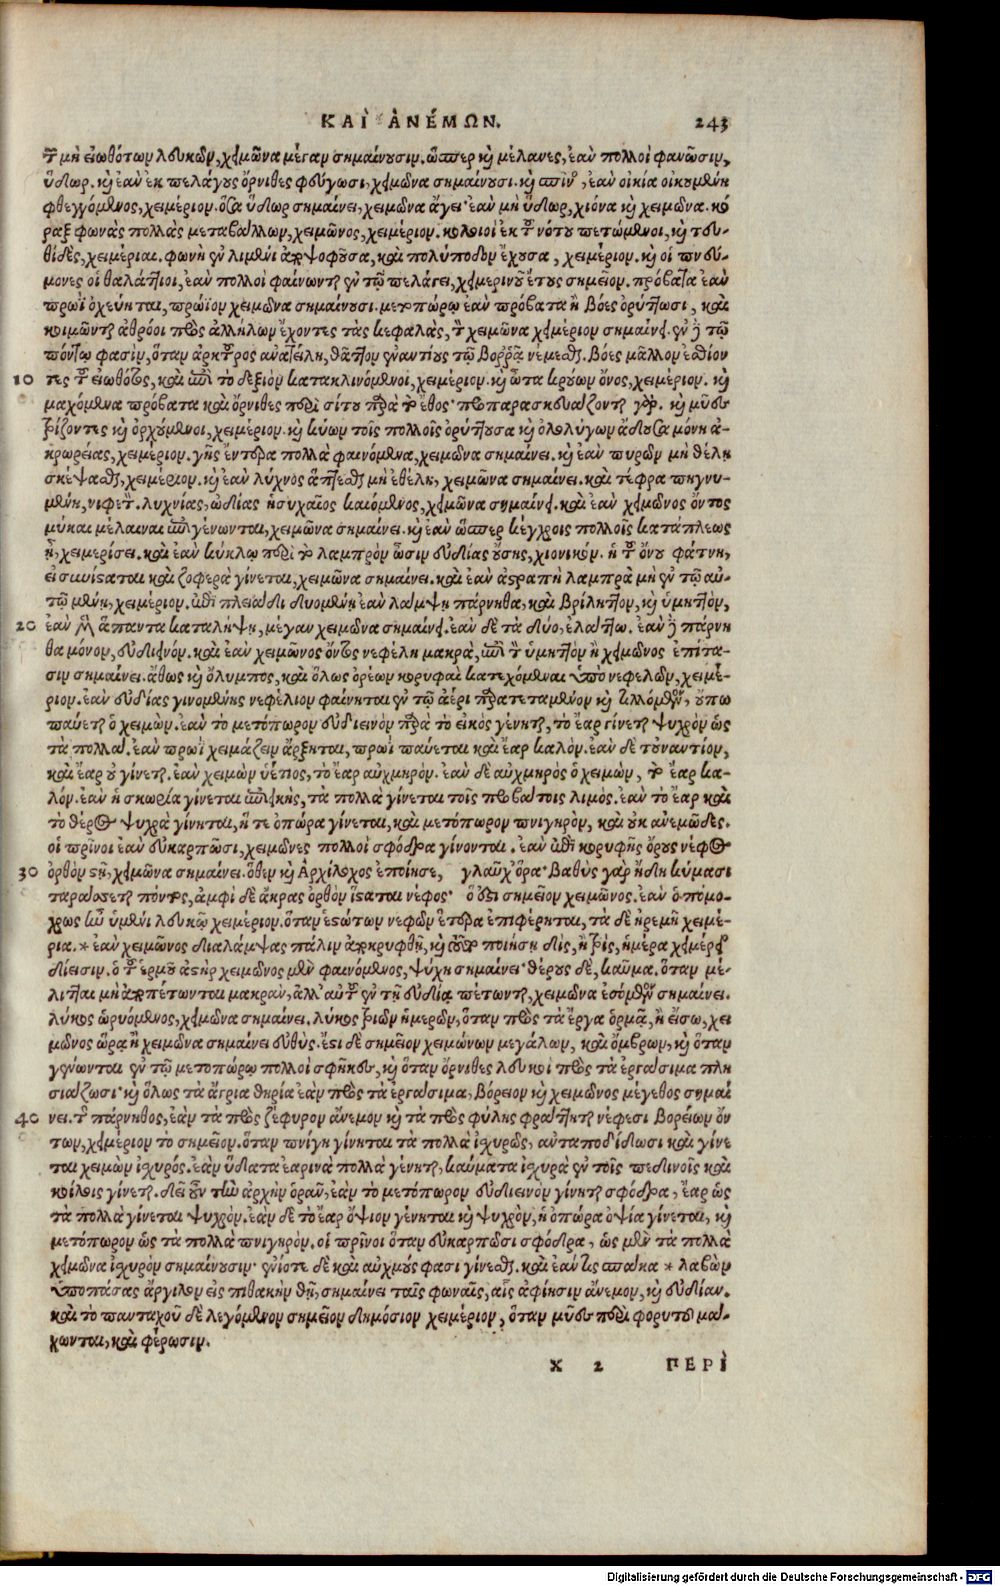 ΚΑΙ ἈΝΕΜΩΝ. 243
τῶν μὴ εἰωθότων λευκῶν, χειμῶνα μέγαν σημαίνουσιν. ὥσπερ καὶ μέλανες, ἐὰν πολλοὶ φανῶσιν,
ὕδωρ. καὶ ἐὰν ἐκ πελάγους ὄρνιθες φεύγωσι, χειμῶνα σημαίνουσι. καὶ σπίνος, ἐὰν οἰκία οἰκουμένη
φθεγγόμενος, χειμέριον. ὅσα ὕδωρ σημαίνει, χειμῶνα ἄγει ἐὰν μὴ ὕδωρ, χιόνα καὶ χειμῶνα. κό
ραξ φωνὰς πολλὰς μεταβάλλων, χειμῶνος, χειμέριον. κολοιοὶ ἐκ τοῦ νότου πετώμενοι, καὶ τευ-
θίδες, χειμέριαι. φωνὴ ἐν λιμένι ἀποψοφοῦσα, καὶ πολύποδον ἔχουσα, χειμέριον. καὶ οἱ πνεύ-
μονες οἱ θαλάττιοι, ἐὰν πολλοὶ φαίνωνται ἐν τῷ πελάγει, χειμερινοῦ ἔτους σημεῖον. πρόβατα ἐὰν
πρωῒ ὀχεύηται, πρώϊον χειμῶνα σημαίνουσι. μετοπώρῳ ἐὰν πρόβατα ἢ βόες ὀρύττωσι, καὶ
κοιμῶνται ἀθρόοι πρὸς ἀλλήλων ἔχοντες τὰς κεφαλὰς, τὸν χειμῶνα χειμέριον σημαίνει. ἐν δὲ τῷ
πόντῳ φασὶν, ὅταν ἀρκτοῦρος ἀνατείλῃ, θᾶττον ἐναντίους τῷ βορρᾷ νέμεσθαι. βόες μᾶλλον ἐσθίον
10 τες τοῦ εἰωθότος, καὶ ἐπὶ τὸ δεξιὸν κατακλινόμενοι, χειμέριον. καὶ ὦτα κρούων ὄνος, χειμέριον. καὶ
μαχόμενα πρόβατα καὶ ὄρνιθες περὶ σίτου παρὰ τὸ ἔθος· προπαρασκευάζονται γάρ. καὶ μῦες
τρίζοντες καὶ ὀρχούμενοι, χειμέριον. καὶ κύων τοῖς πολλοῖς ὀρύττουσα καὶ ὀλολύγων ἄδουσα μόνη ἀ-
κρωρείας, χειμέριον. γῆς ἔντερα πολλὰ φαινόμενα, χειμῶνα σημαίνει. καὶ ἐὰν πυρὸν μὴ θέλῃ
σκέψασθαι, χειμέριον. καὶ ἐὰν λύχνος ἅπτεσθαι μὴ ἐθέλῃ, χειμῶνα σημαίνει. καὶ τέφρα πηγνυ-
μένη, νιφετόν. λυχνίας, εὐδίας ἡσυχαῖος καιόμενος, χειμῶνα σημαίνει. καὶ ἐὰν χειμῶνος ὄντος
μύκαι μέλαιναι ἐπιγένωνται, χειμῶνα σημαίνει. καὶ ἐὰν ὥσπερ κέγχροις πολλοῖς κατάπλεως
ᾖ, χειμερίσει. καὶ ἐὰν κύκλῳ περὶ τὸ λαμπρὸν ὦσιν εὐδίας οὔσης, χιονικόν. ἡ τοῦ ὄνου φάτνη,
εἰ συνίσταται καὶ ζοφερὰ γίνεται, χειμῶνα σημαίνει. καὶ ἐὰν ἀστραπὴ λαμπρὰ μὴ ἐν τῷ αὐ-
τῷ μένῃ, χειμέριον. ἐπὶ πλειάδι δυομένῃ ἐὰν λάμψῃ πάρνηθα, καὶ βρίληττον, καὶ ὑμηττὸν,
20 ἐὰν μὲν ἅπαντα καταλήψῃ, μέγαν χειμῶνα σημαίνει. ἐὰν δὲ τὰ δύο, ἐλάττω. ἐὰν δὲ πάρνη
θα μόνον, εὐδιεινόν. καὶ ἐὰν χειμῶνος ὄντος νεφέλη μακρὰ, ἐπὶ τὸν ὑμηττὸν ᾖ χειμῶνος ἐπίτα-
σιν σημαίνει. ἄθως καὶ ὄλυμπος, καὶ ὅλως ὀρέων κορυφαὶ κατεχόμεναι ὑπὸ νεφελῶν, χειμέ-
ριον. ἐὰν εὐδίας γινομένης νεφέλιον φαίνηται ἐν τῷ ἀέρι παρατεταμένον καὶ τιλλόμενον, οὔπω
παύεται ὁ χειμών. ἐὰν τὸ μετόπωρον εὐδιεινὸν παρὰ τὸ εἰκὸς γένηται, τὸ ἔαρ γίνεται ψυχρὸν ὡς
τὰ πολλά. ἐὰν πρωῒ χειμάζειν ἄρξηται, πρωῒ παύεται καὶ ἔαρ καλόν. ἐὰν δὲ τοὐναντίον,
καὶ ἔαρ οὐ γίνεται. ἐὰν χειμὼν ὑέτιος, τὸ ἔαρ αὐχμηρόν. ἐὰν δὲ αὐχμηρὸς ὁ χειμὼν, τὸ ἔαρ κα-
λόν. ἐὰν ἡ σκωρία γίνεται ἐπιεικὴς, τὰ πολλὰ γίνεται τοῖς προβάτοις λιμός. ἐὰν τὸ ἔαρ καὶ
τὸ θέρος ψυχρὰ γίνηται, ἥ τε ὀπώρα γίνεται, καὶ μετόπωρον πνιγηρὸν, καὶ οὐκ ἀνεμῶδες.
οἱ πρῖνοι ἐὰν εὐκαρπῶσι, χειμῶνες πολλοὶ σφόδρα γίνονται. ἐὰν ἐπὶ κορυφῆς ὄρους νέφος
30 ὀρθὸν στῇ, χειμῶνα σημαίνει. ὅθεν καὶ Ἀρχίλοχος ἐποίησε, γλαῦχ᾽ ὅρα· βαθὺς γὰρ ἤδη κύμασι
ταράσσεται πόντος, ἀμφὶ δὲ ἄκρας ὀρθὸν ἵσταται νέφος· ὅ ἐστι σημεῖον χειμῶνος. ἐὰν ὁπόμο-
χρως τῷ ὑμένι λευκῷ χειμέριον. ὅταν ἑστώτων νεφῶν ἕτερα ἐπιφέρηται, τὰ δὲ ἠρεμῇ χειμέ-
ρια. * ἐὰν χειμῶνος διαλάμψας πάλιν ἀποκρυφθῇ, καὶ τοῦτο ποιήσῃ δὶς, ἢ τρὶς, ἡμέρα χειμέριος
δίεισιν. ὁ τοῦ ἑρμοῦ ἀστὴρ χειμῶνος μὲν φαινόμενος, ψύχη σημαίνει· θέρους δὲ, καῦμα. ὅταν μέ-
λιτται μὴ ἀποπέτωνται μακρὰν, ἀλλ᾽ αὐτοῦ ἐν τῇ εὐδίᾳ πέτωνται, χειμῶνα ἐσόμενον σημαίνει.
λύκος ὠρυόμενος, χειμῶνα σημαίνει. λύκος τριῶν ἡμερῶν, ὅταν πρὸς τὰ ἔργα ὁρμᾷ, ἢ εἴσω, χει
μῶνος ὥρᾳ ἢ χειμῶνα σημαίνει εὐθύς. ἔστι δὲ σημεῖον χειμώνων μεγάλων, καὶ ὄμβρων, καὶ ὅταν
γένωνται ἐν τῷ μετοπώρῳ πολλοὶ σφῆκες, καὶ ὅταν ὄρνιθες λευκοὶ πρὸς τὰ ἐργάσιμα πλη
σιάζωσι· καὶ ὅλως τὰ ἄγρια θηρία ἐὰν πρὸς τὰ ἐργάσιμα, βόρειον καὶ χειμῶνος μέγεθος σημαί
40 νει. τοῦ πάρνηθος, ἐὰν τὰ πρὸς ζέφυρον ἄνεμον καὶ τὰ πρὸς φύλης φράττηται νέφεσι βορείων ὄν
των, χειμέριον τὸ σημεῖον. ὅταν πνίγη γίνηται τὰ πολλὰ ἰσχυρῶς, ἀνταποδίδωσι καὶ γίνε
ται χειμὼν ἰσχυρός. ἐὰν ὕδατα ἐαρινὰ πολλὰ γένηται, καύματα ἰσχυρὰ ἐν τοῖς πεδινοῖς καὶ
κοίλοις γίνεται. δεῖ οὖν τὴν ἀρχὴν ὁρᾶν, ἐὰν τὸ μετόπωρον εὐδιεινὸν γίνηται σφόδρα, ἔαρ ὡς
τὰ πολλὰ γίνεται ψυχρόν. ἐὰν δὲ τὸ ἔαρ ὄψιον γένηται καὶ ψυχρὸν, ἡ ὀπώρα ὀψία γίνεται, καὶ
μετόπωρον ὡς τὰ πολλὰ πνιγηρόν. οἱ πρῖνοι ὅταν εὐκαρπῶσι σφόδρα, ὡς μὲν τὰ πολλὰ
χειμῶνα ἰσχυρὸν σημαίνουσιν· ἐνίοτε δὲ καὶ αὐχμοὺς φασι γίνεσθαι. καὶ ἐάν τις σπάκα * λαβὼν
ὑποπάσας ἄργιλον εἰς πιθακὴν θῇ, σημαίνει ταῖς φωναῖς, αἷς ἀφίησιν ἄνεμον, καὶ εὐδίαν.
καὶ τὸ πανταχοῦ δὲ λεγόμενον σημεῖον δημόσιον χειμέριον, ὅταν μῦες περὶ φορυτοῦ μά-
χωνται, καὶ φέρωσιν.
X 2 ΠΕΡΙ
Digitalisierung gefördert durch die Deutsche Forschungsgemeinschaft - DFG